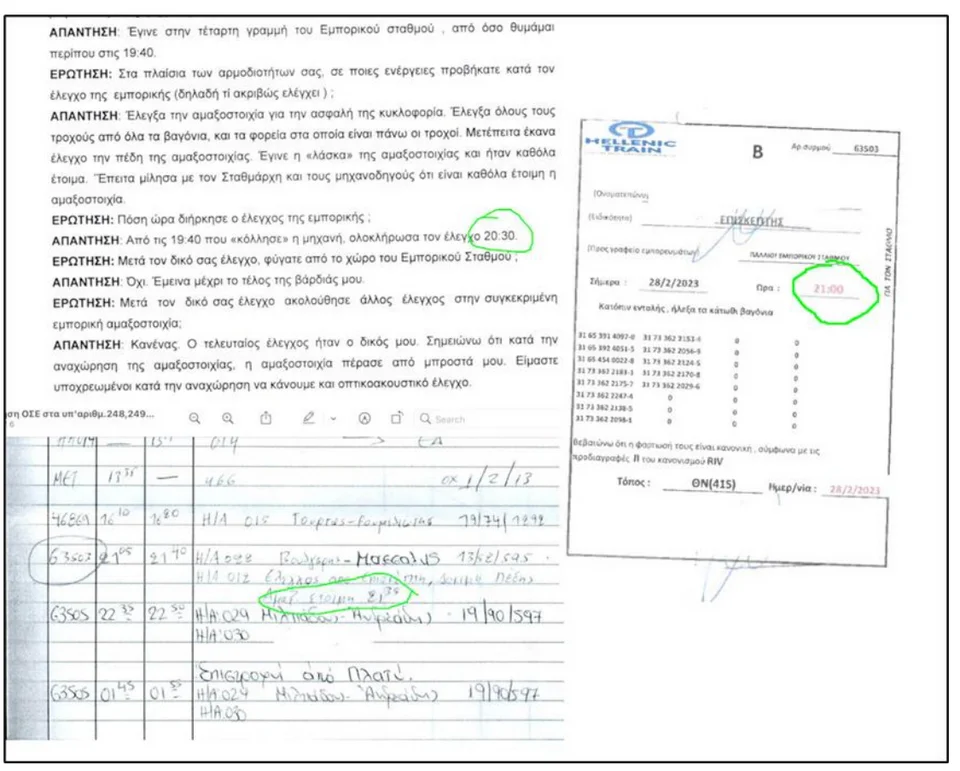 ΑΠΑΝΤΗΣΗ: Έγινε στην τέταρτη γραμμή του Εμπορικού σταθμού , από όσο θυμάμαι
περίπου στις 19:40.
ΕΡΩΤΗΣΗ: Στα πλαίσια των αρμοδιοτήτων σας, σε ποιες ενέργειες προβήκατε κατά τον
έλεγχο της εμπορικής (δηλαδή τί ακριβώς ελέγχει ) ;
ΑΠΑΝΤΗΣΗ: Έλεγξα την αμαξοστοιχία για την ασφαλή της κυκλοφορία. Έλεγξα όλους τους
τροχούς από όλα τα βαγόνια, και τα φορεία στα οποία είναι πάνω οι τροχοί. Μετέπειτα έκανα
έλεγχο την πέδη της αμαξοστοιχίας. Έγινε η «λάσκα» της αμαξοστοιχίας και ήταν καθόλα
έτοιμα. Έπειτα μίλησα με τον Σταθμάρχη και τους μηχανοδηγούς ότι είναι καθόλα έτοιμη η
αμαξοστοιχία.
ΕΡΩΤΗΣΗ: Πόση ώρα διήρκησε ο έλεγχος της εμπορικής ;
ΑΠΑΝΤΗΣΗ: Από τις 19:40 που «κόλλησε» η μηχανή, ολοκλήρωσα τον έλεγχο 20:30.
ΕΡΩΤΗΣΗ: Μετά τον δικό σας έλεγχο, φύγατε από το χώρο του Εμπορικού Σταθμού ;
ΑΠΑΝΤΗΣΗ: Όχι. Έμεινα μέχρι το τέλος της βάρδιάς μου.
ΕΡΩΤΗΣΗ: Μετά τον δικό σας έλεγχο ακολούθησε άλλος έλεγχος στην συγκεκριμένη
εμπορική αμαξοστοιχία;
ΑΠΑΝΤΗΣΗ: Κανένας. Ο τελευταίος έλεγχος ήταν ο δικός μου. Σημειώνω ότι κατά την
αναχώρηση της αμαξοστοιχίας, η αμαξοστοιχία πέρασε από μπροστά μου. Είμαστε
υποχρεωμένοι κατά την αναχώρηση να κάνουμε και οπτικοακουστικό έλεγχο.
ση ΟΣΕ στα υπ'αριθμ.248,249...
6
Search
014 ΕΔ
ΜΕΤ 466 1/2/13
46869 16 10 Η/Α 015 19/74/1292
63503 21 05 21 40 Η/Α 022 Βουλγαρης-
Η/Α 012 Πέδης
έτοιμη 21 35
63505 22 35 22 50 Η/Α:029 19/90/597
Η/Α:030
Επιστροφή από Πλατύ.
63505 01 45 01 55 Η/Α:029 19/90/597
Η/Α:030
HELLENIC
TRAIN
Β
Αρ.συρμού 63503
(Ονοματεπώνυμο)
(Ειδικότητα) ΕΠΙΣΚΕΠΤΗΣ
(Προς γραφείο εμπορευμάτων) ΠΑΛΑΙΟΙ ΕΜΠΟΡΙΚΟΙ ΣΤΑΘΜΟΥ
ΓΙΑ ΤΟΝ ΣΤΑΘΜΟ
Σήμερα : 28/2/2023 Ώρα : 21:00
Κατόπιν εντολής , ήλεξα τα κάτωθι βαγόνια
31 65 391 4097-0 31 73 362 2153-4 0 0
31 65 392 4051-5 31 73 362 2056-8 0 0
31 65 454 0022-8 31 73 362 2124-5 0 0
31 73 362 2183-1 31 73 362 2170-8 0 0
31 73 362 2175-7 31 73 362 2029-6 0 0
31 73 362 2247-4 0 0 0
31 73 362 2138-5 0 0 0
31 73 362 2098-1 0 0 0
Βεβαιώνω ότι η φόρτωσή τους είναι κανονική , σύμφωνα με τις
προδιαγραφές ΙΙ του κανονισμού RIV
Τόπος : ΘΝ(415) Ημερ/νία : 28/2/2023